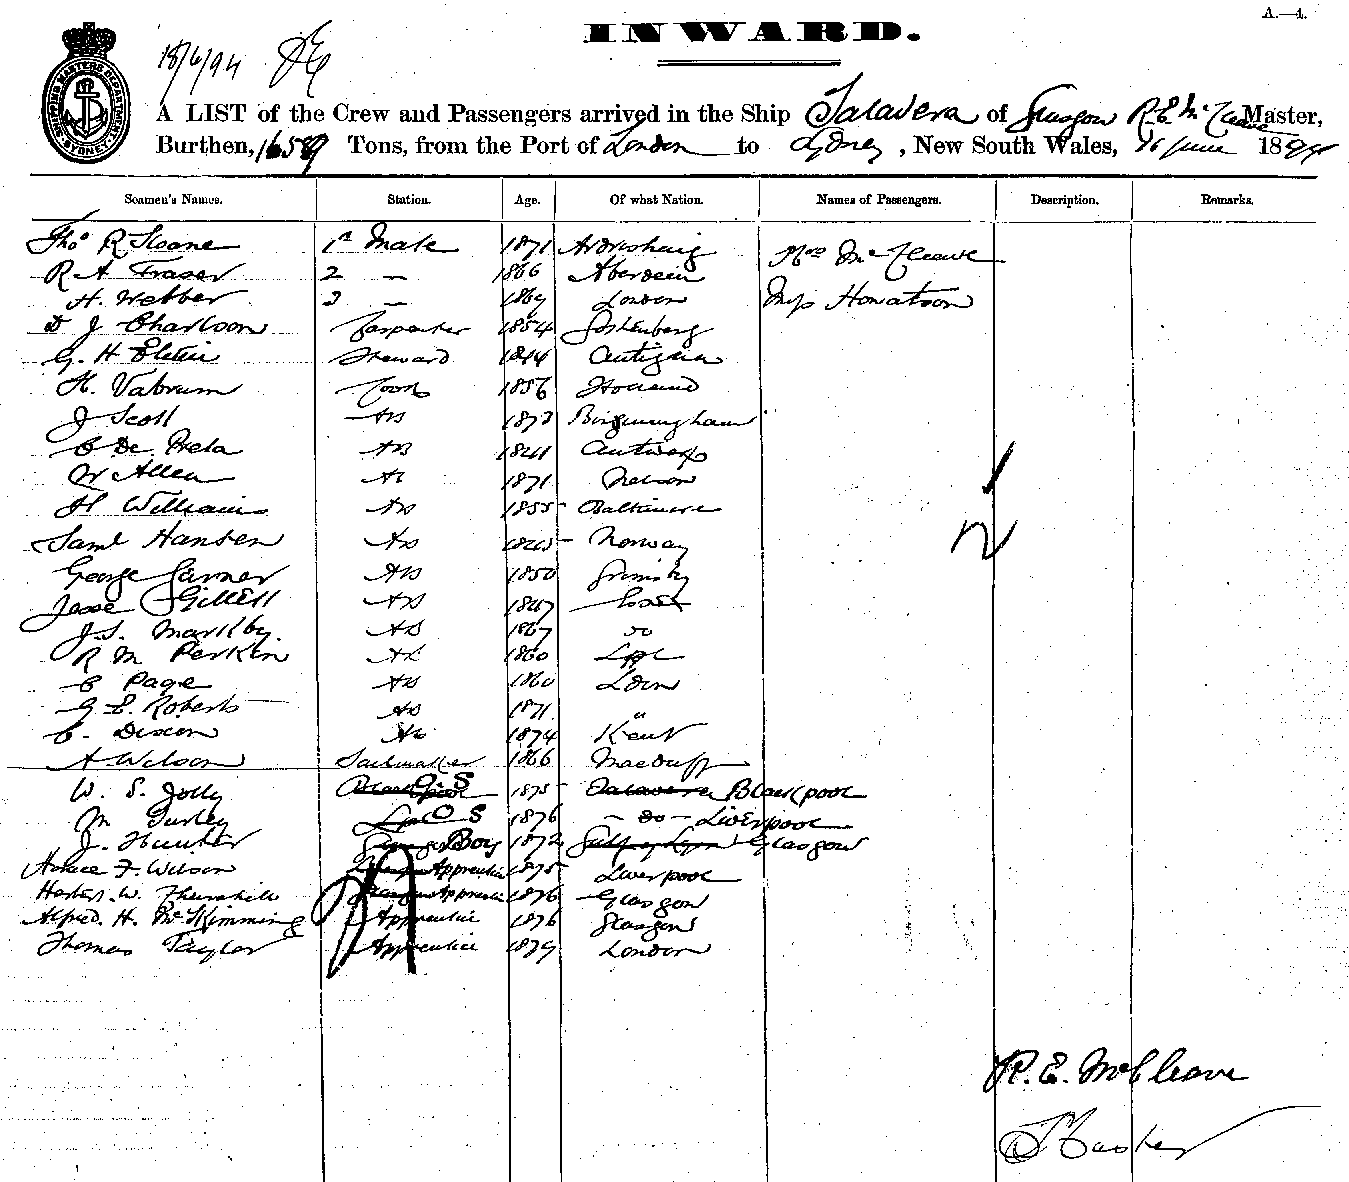 A.—4.
INWARD.
18/6/94
SHIPPING MASTERS DEPARTMENT SYDNEY
A LIST of the Crew and Passengers arrived in the Ship Talavera of Glasgow R.E. McCleave Master,
Burthen, Tons, from the Port of London to Sydney, New South Wales, 16 June 1894
Seamen's Names. Station. Age. Of what Nation. Names of Passengers. Description. Remarks.
Thos R Sloane 1st Mate 1871 Ardrishaig Mrs McCleave
R A Fraser 2 — 1866 Aberdeen
H. Webber 3 — 1869 London Miss Howatson
D J Charlson Carpenter 1854 Gothenburg
G. H Steward Antigua
H. Vabrum Cook 1856 Holland
J Scott AB 1873 Birgmingham
C De AB Antwerp
W Allen AB 1871 Nelson
H Williams AB 1855 Baltimore
Saml Hansen AB Norway
George Garner AB 1850 Grimsby
Jesse Gillett AB
J.S. Markby. AB 1867 do
R M Perkin AB 1860 Lpl
C Page AB 1860 Ldon
G E. Roberts AB 1871 "
C. Dixon AB 1874 Kent
A Wilson Sailmaker 1866 Macduff
W. S. Jolly O.S 1875 Blackpool
M Turley O S 1876 — do — Liverpool
J. Hunter Boy 1872 Glasgow
Horace F. Wilson Apprentice 1875 Liverpool
W. Thornhill Apprentice 1876 Glasgow
Alfred. H. McKimming Apprentice 1876 Glasgow
Thomas Taylor Apprentice 1879 London
R. E. McCleave